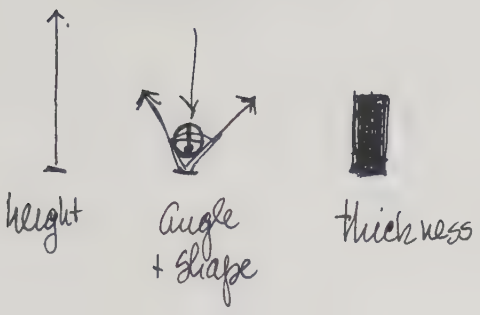 height
angle
+ shape
thickness